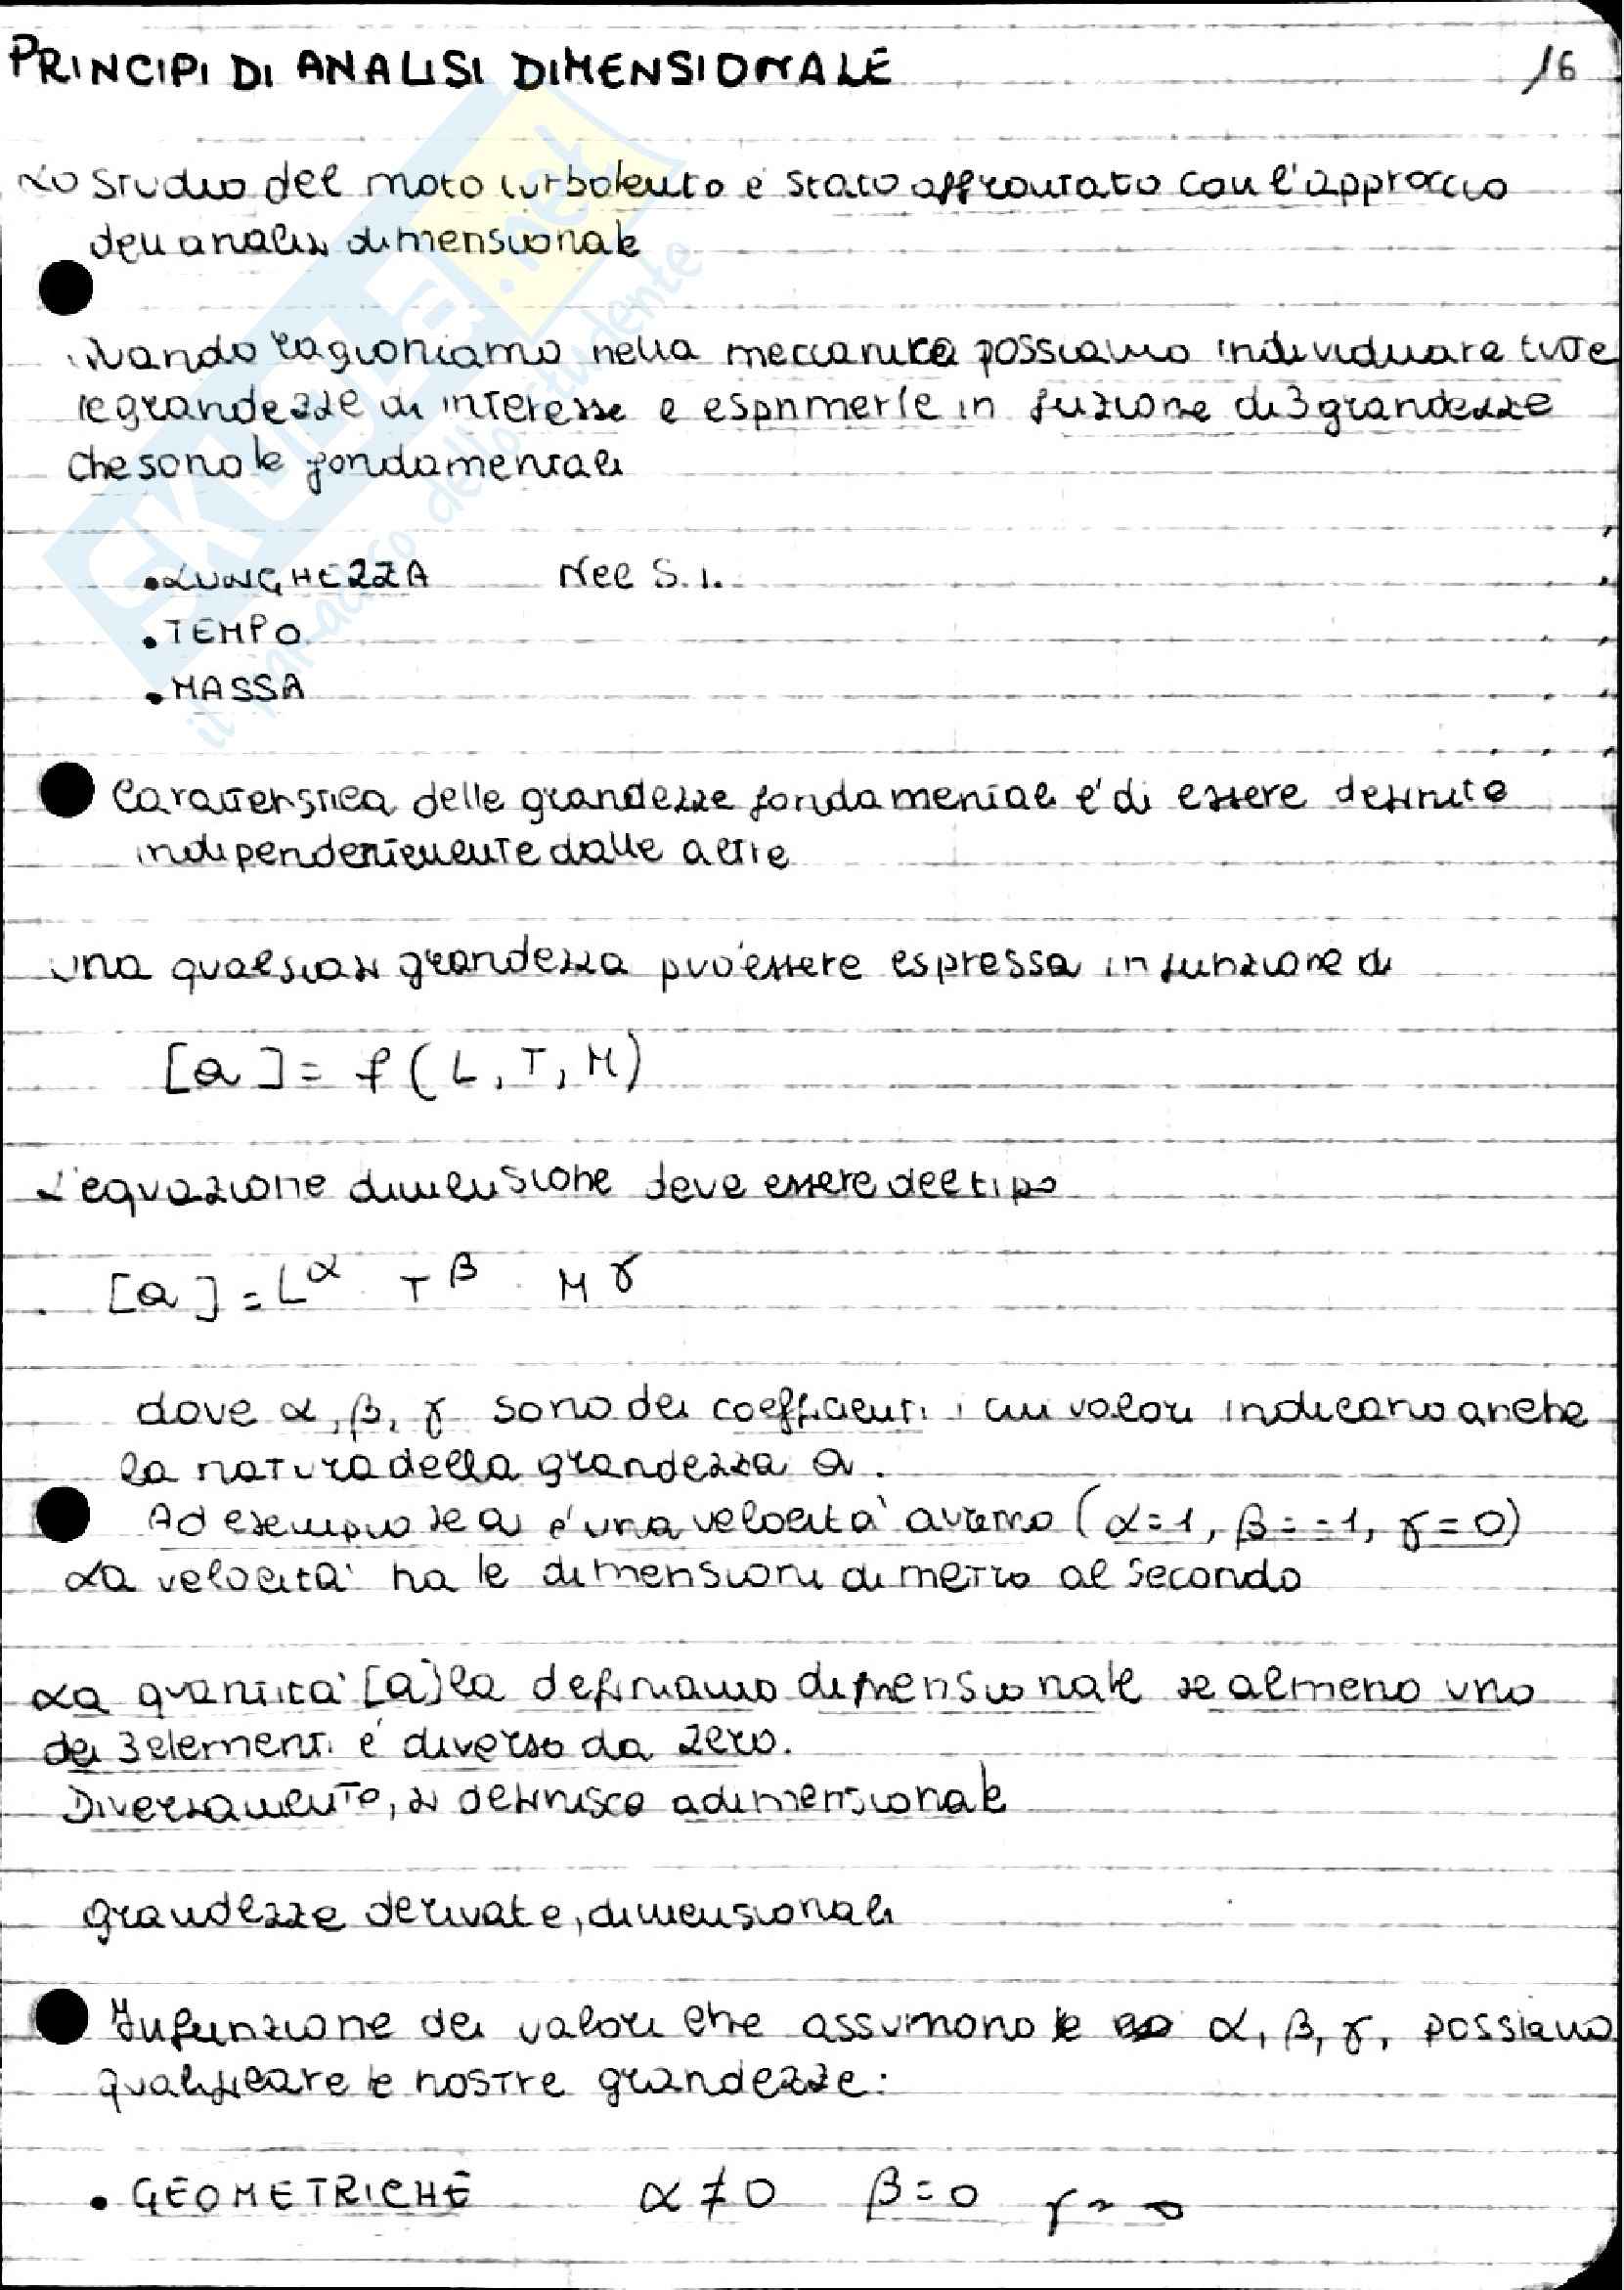 PRINCIPI DI ANALISI DIMENSIONALE
16
Lo studio del moto turbolento é stato affrontato con l'approccio
dell analisi dimensionale
Quando ragioniamo nella meccanica possiamo individuare tutte
le grandezze di interesse e esprimerle in funzione di 3 grandezze
che sono le fondamentali
• LUNGHEZZA Nel S.I.
• TEMPO
• MASSA
Caratteristica delle grandezze fondamentali é di essere definite
indipendentemente dalle altre
Una qualsiasi grandezza può essere espressa in funzione di
[a] = f (L, T, M)
L'equazione dimensione deve essere del tipo
[a] = L^α · T^β · M^γ
dove α, β, γ sono dei coefficienti i cui valori indicano anche
la natura della grandezza a.
Ad esempio se a é una velocità avremo (α=1, β=-1, γ=0)
La velocità ha le dimensioni di metro al secondo
La quantità [a] la definiamo dimensionale se almeno uno
dei 3 elementi é diverso da zero.
Diversamente, si definisce adimensionale
grandezze derivate, dimensionali
In funzione dei valori che assumono le α, β, γ, possiamo
qualificare le nostre grandezze:
• GEOMETRICHE α≠0 β=0 γ=0
SKUOLA.net
il paradiso dello studente